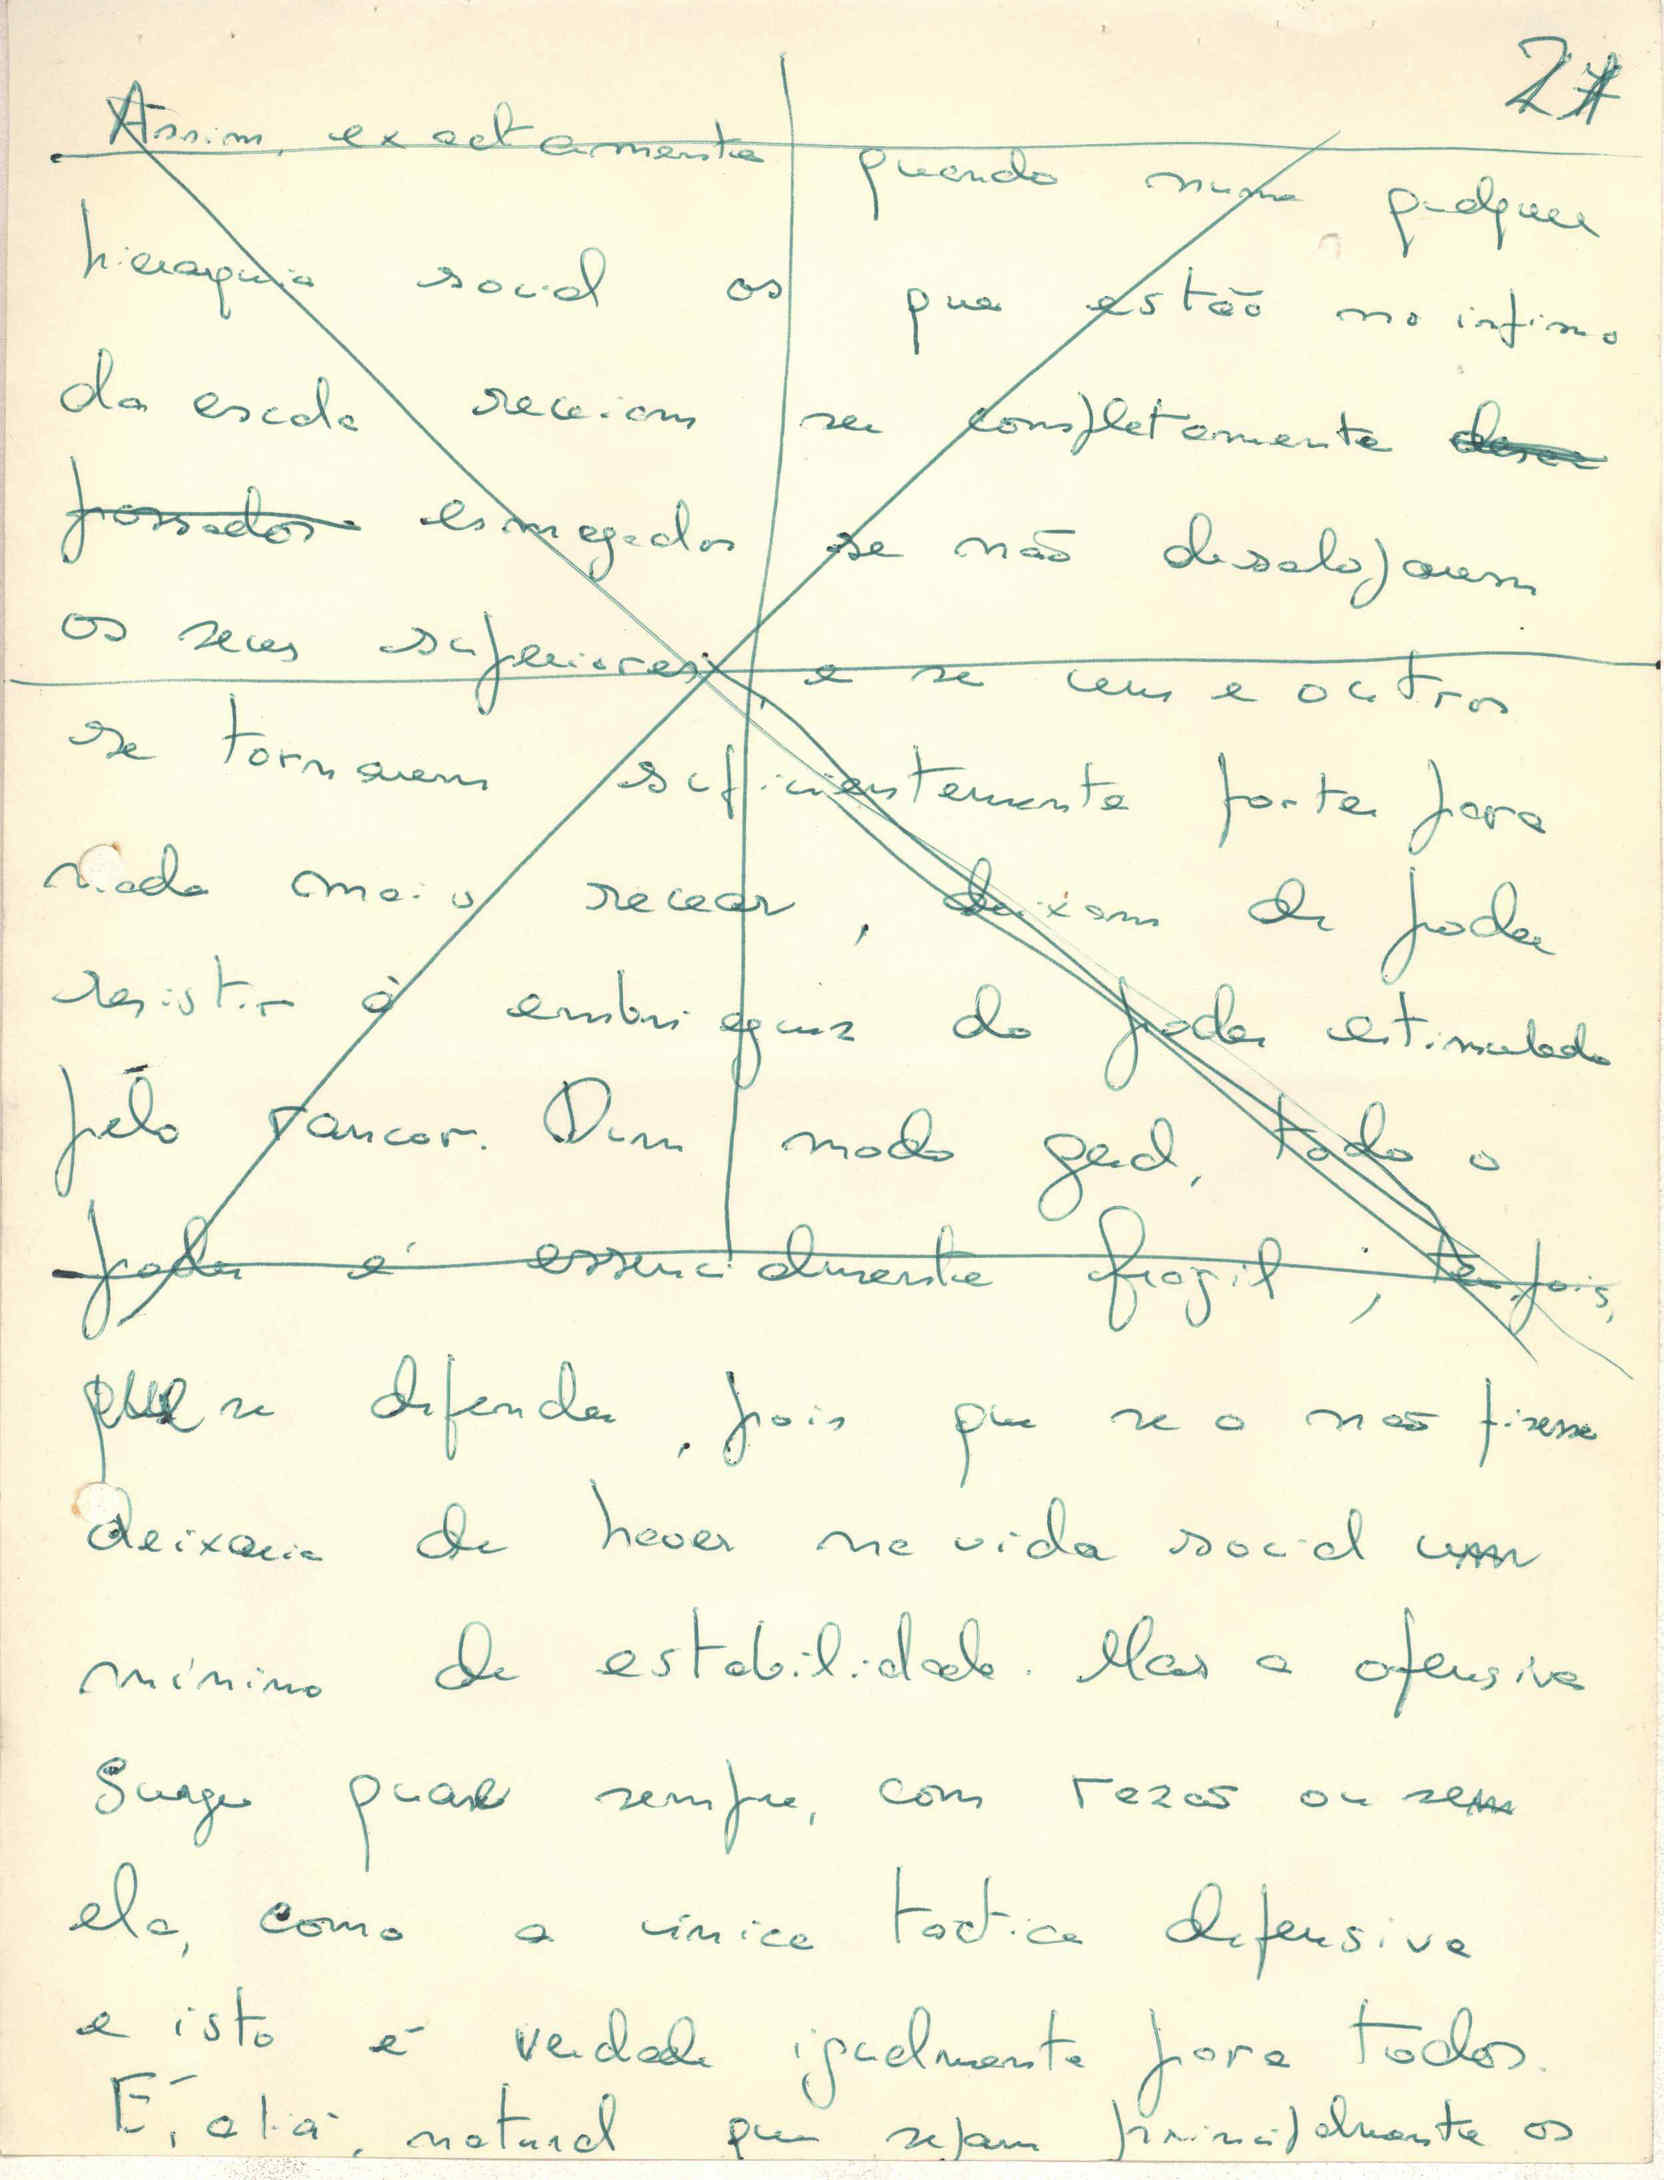 27
Assim, exactamente quando numa qualquer
hierarquia social os que estão no infimo
da escala receiam ser completamente
possados esmagados se não desalojarem
os seus superiores, e se uns e outros
se tornarem suficientemente fortes para
nada mais recear, deixam de poder
resistir à embriaguez do poder estimulado
pêlo rancor. Dum modo geral, todo o
poder é essencialmente frágil; tem, pois,
que se defender, pois que se o não fizesse
deixaria de haver na vida social um
mínimo de estabilidade. Mas a ofensiva
surge quase sempre, com razão ou sem
ela, como a única tactica defensiva
e isto é verdade igualmente para todos.
É, aliás, natural que sejam principalmente os